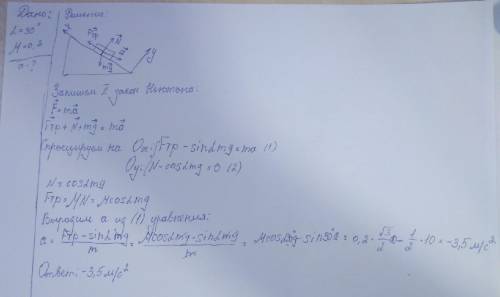 Дано:
Решение:
L=30°
М=0,2
a-?
x
Fтр
N
a
mg
y
Запишем II закон Ньютона:
F=ma
Fтр+N+mg=ma
Спроецируем на Ox: Fтр - sinLmg=ma (1)
Oy: N-cosLmg=0 (2)
N=cosLmg
Fтр=MN=McosLmg
Выводим a из (1) уравнения:
a = Fтр-sinLmg / m = McosLmg-sinLmg / m = Mcos30°g-sin30°g = 0,2·√3/2·10-1/2·10=-3,5м/с²
Ответ: -3,5м/с²